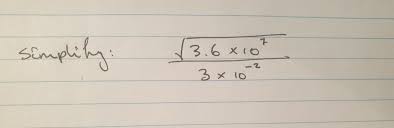 Simplify: √(3.6 × 10⁷)
3 × 10⁻²